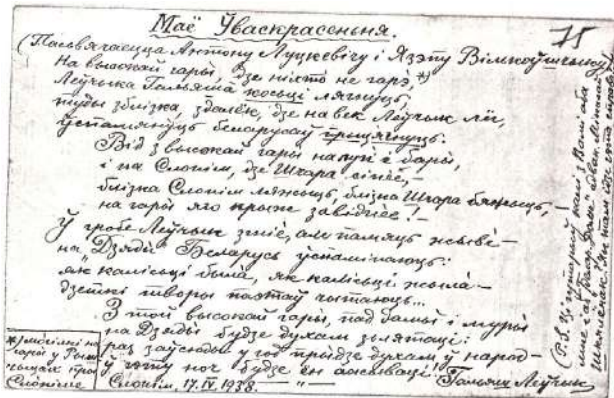 75
Маё Ўваскрасеньня.
(Пасьвячаецца Антону Луцкевічу і Язэпу Вілікоўшчыку)
На высокай гары, дзе ніхто не гарэ, *)
Леўчыка Гальяша косьці лягнуць,
туды зблізка здалёк, дзе навек Леўчык лёг,
ўспамянуць беларусаў прыцягнуць.
Від з высокай гары на лугі і бары,
і на Слонім, дзе Шчара сінее, —
блізка Слонім ляжыць, блізка Шчара бяжыць, —
на гары яго крыж завіднее! —
Ў гробе Леўчык зьніе, але памяць жыве —
на Дзяды Беларусь ўспамінаюць:
як калісьці была, як калісьці жыла —
дзеткі творы паэтаў чытаюць...
З той высокай гары, над дамы і муры
на Дзяды будзе духам зьлятаці:
раз заўсёды ў год прыдзе духам ў народ —
ў гэту ноч будзе ён адсываці!
Слонім, 17.IV.1938. — " —
Гальяш Леўчык
*) могілкі на
гары ў
пры
Слоніме
(P.S. калі з Вамі аба
мне